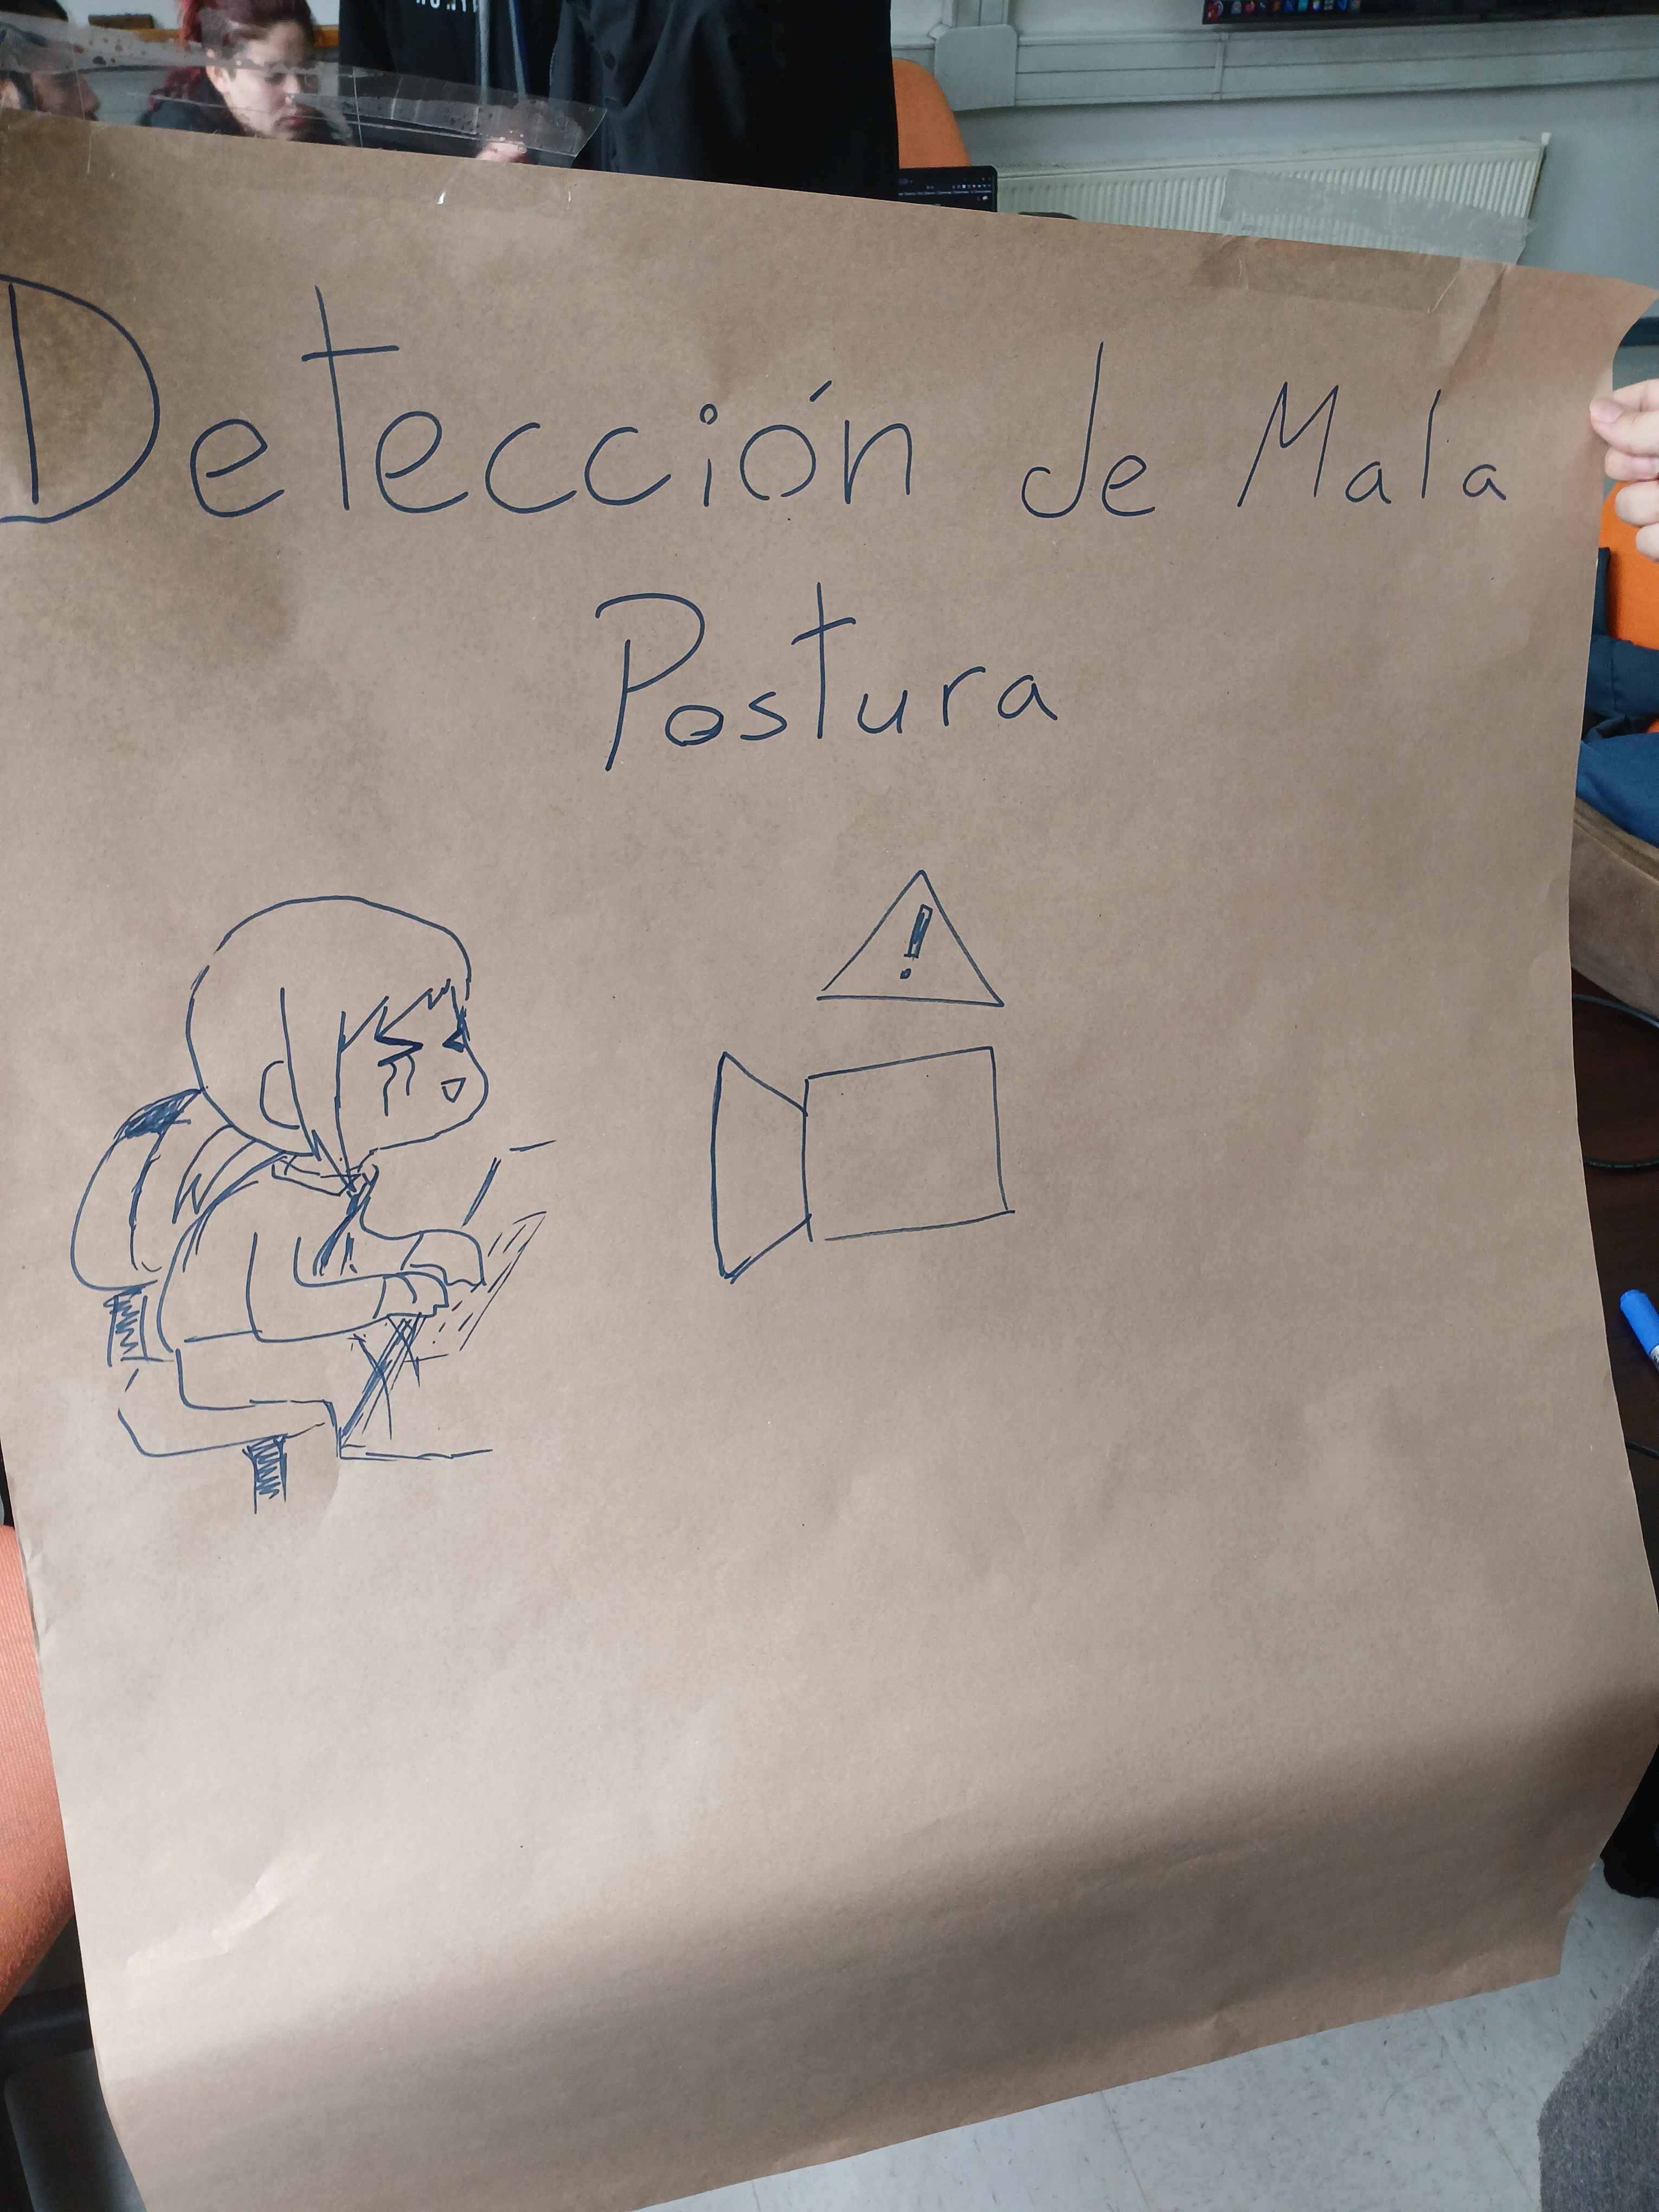 Detección de Mala
Postura
!